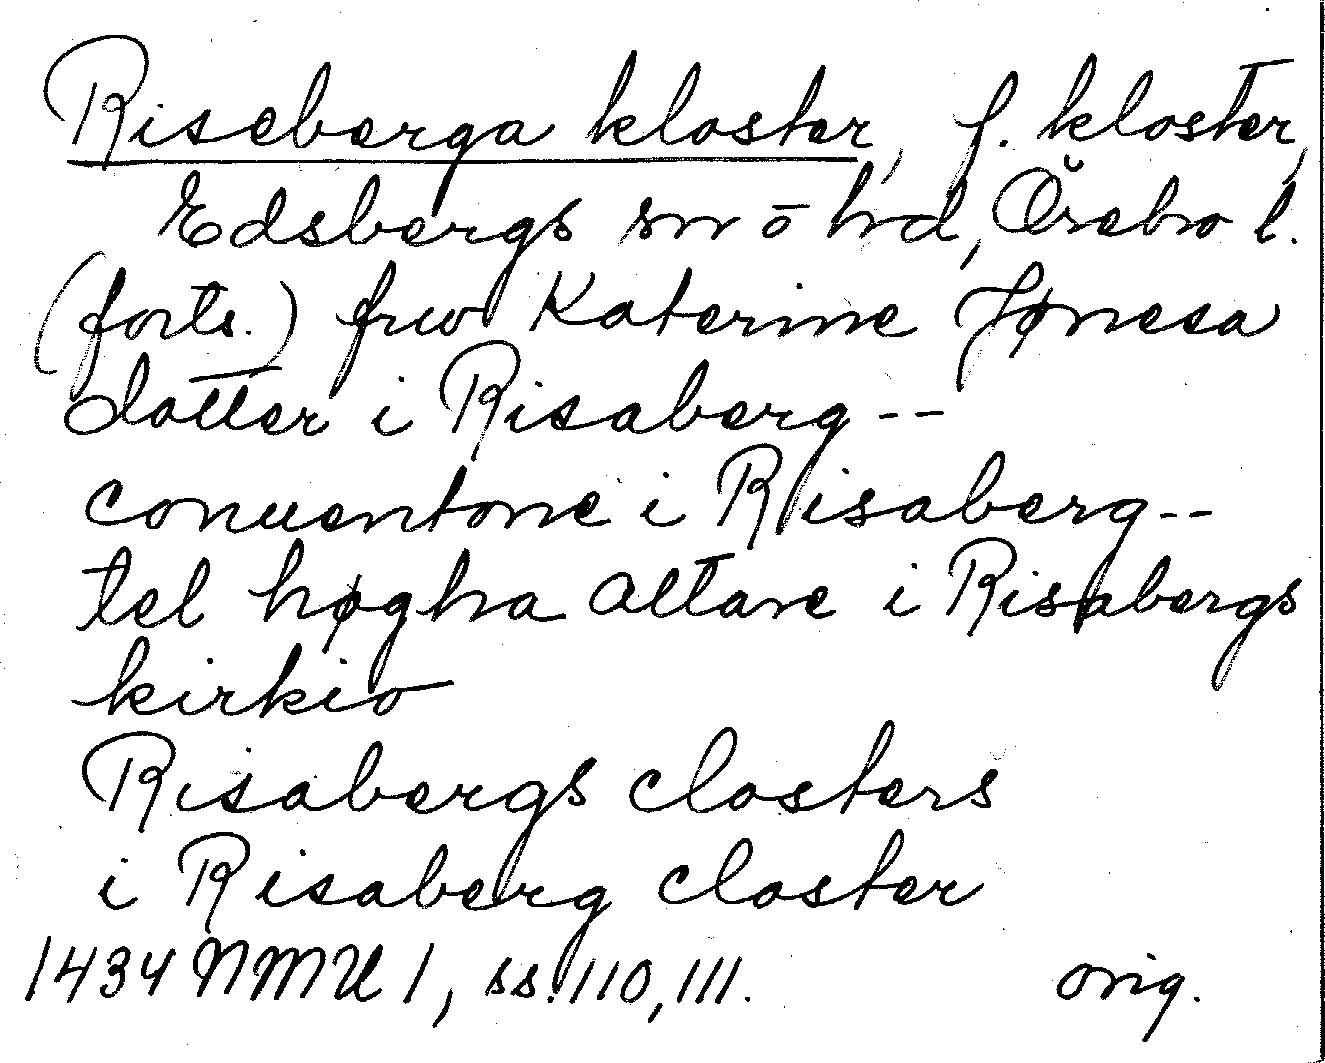 Riseberga kloster, f. kloster,
Edsbergs sn o hd, Örebro l.
(forts.) frw Katerine Jønesa
dotter i Risaberg--
conuentone i Risaberg--
tel høgha altare i Risabergs
kirkio
Risabergs closters
i Risaberg closter
1434 NMU 1, ss. 110, 111. orig.